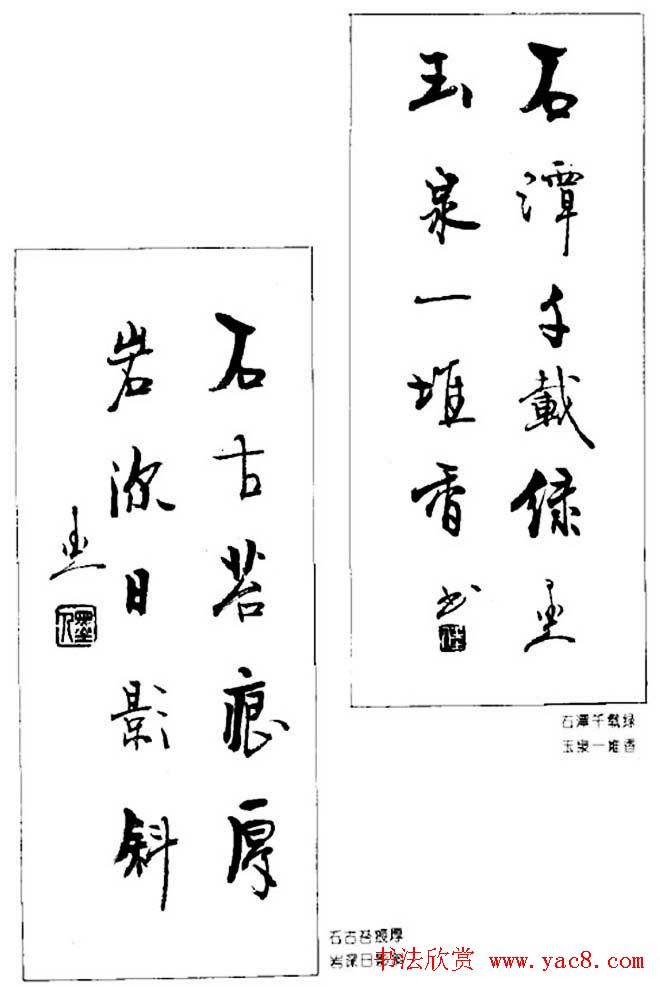 石潭千載緑
玉泉一堆香
石潭千载绿
玉泉一堆香
石古苔痕厚
岩深日影斜
石古苔痕厚
岩深日影斜
书法欣赏 www.yac8.com